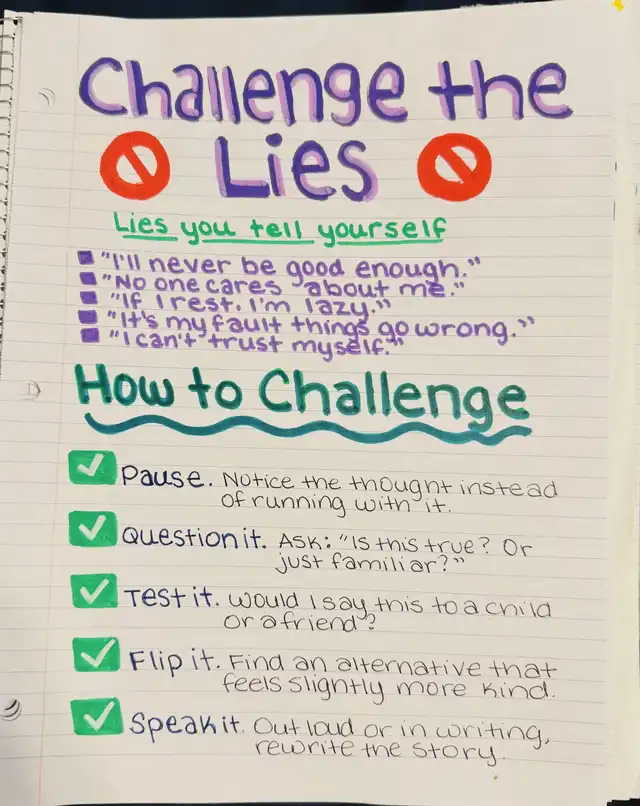 Challenge the
Lies
Lies you tell yourself
"I'll never be good enough."
"No one cares about me."
"If I rest, I'm lazy."
"It's my fault things go wrong."
"I can't trust myself."
How to Challenge
Pause. Notice the thought instead
of running with it.
Question it. Ask: "Is this true? Or
just familiar?"
Test it. Would I say this to a child
or a friend?
Flip it. Find an alternative that
feels slightly more kind.
Speak it. Out loud or in writing,
rewrite the story.